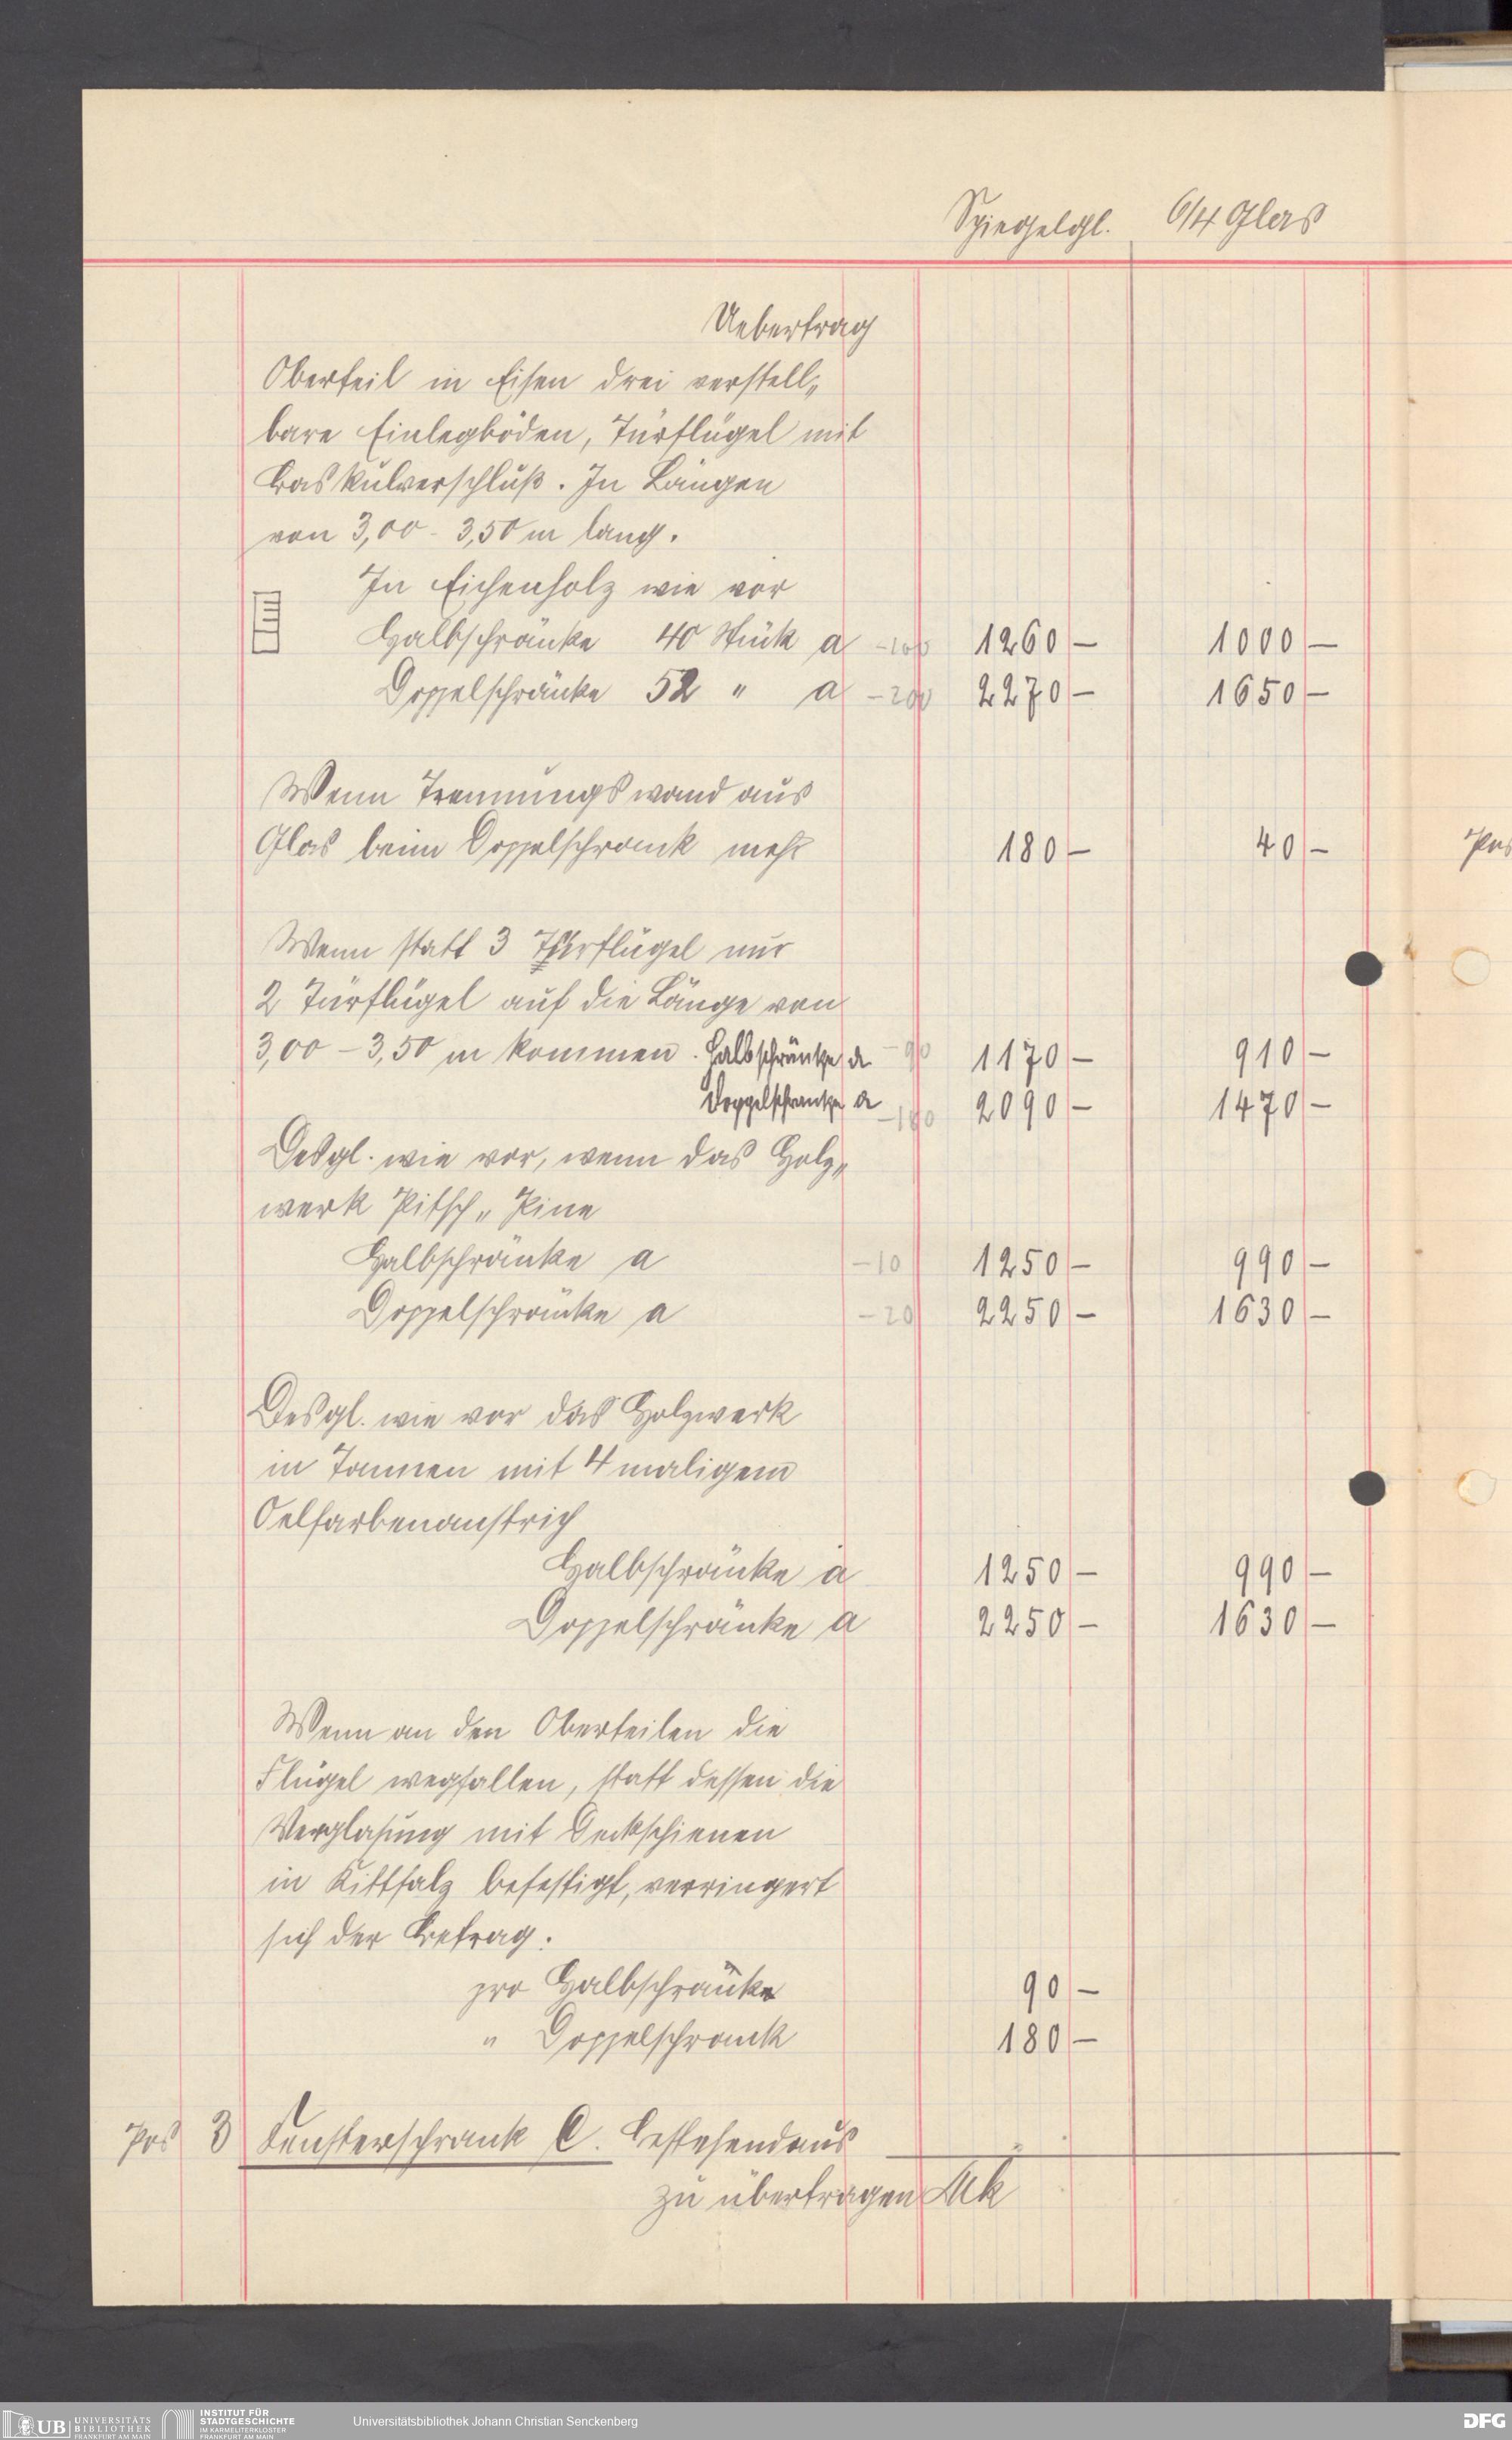 Spiegelgl. 6/4 Glas
Uebertrag
Oberteil in Eisen drei verstell„
bare Einlegböden, Türflügel mit
Baskülverschluß. In Längen
von 3,00 - 3,50 m lang.
In Eichenholz wie vor
Halbschränke 40 Stük a -100 1260 - 1000 -
Doppelschränke 52 " a -200 2270 - 1650 -
Wenn Trennungswand aus
Glas beim Doppelschrank mehr 180 - 40 -
Pos
Wenn statt 3 Türflügel nur
2 Türflügel auf die Länge von
3,00 - 3,50 m kommen. Halbschränke a -90 1170 - 910 -
Doppelschranke a -180 2090 - 1470 -
Desgl. wie vor, wenn das Holz„
werk Pitsch„ Pine
Halbschränke a -10 1250 - 990 -
Doppelschränke a -20 2250 - 1630 -
Desgl. wie vor das Holzwerk
in Tannen mit 4 maligem
Oelfarbenanstrich
Halbschränke a 1250 - 990 -
Doppelschränke a 2250 - 1630 -
Wenn an den Oberteilen die
Flügel wegfallen, statt dessen die
Verglasung mit Deckschienen
in Kittfalz befestigt, verringert
sich der Betrag:
pro Halbschränke 90 -
" Doppelschrank 180 -
Pos 3 Fensterschrank C. Bestehend aus
zu übertragen Mk
UB UNIVERSITÄTS
BIBLIOTHEK
FRANKFURT AM MAIN
INSTITUT FÜR
STADTGESCHICHTE
IM KARMELITERKLOSTER
FRANKFURT AM MAIN
Universitätsbibliothek Johann Christian Senckenberg
DFG